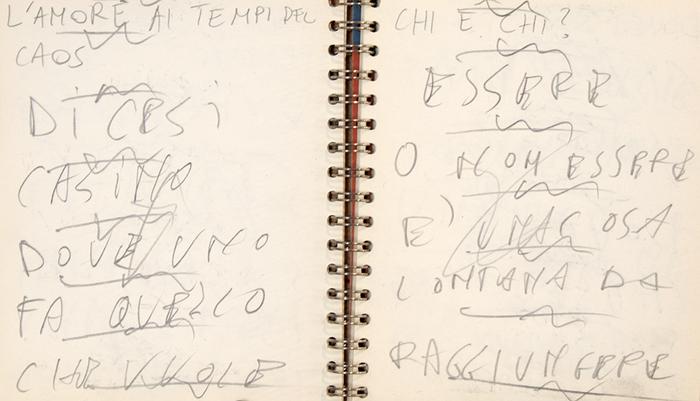 L'AMORE AI TEMPI DEL
CAOS
DICESI
CASINO
DOVE UNO
FA QUELLO
CHE VUOLE
CHI E CHI?
ESSERE
O NON ESSERE
E' UNAC OSA
LONTANA DA
RAGGIUNGERE